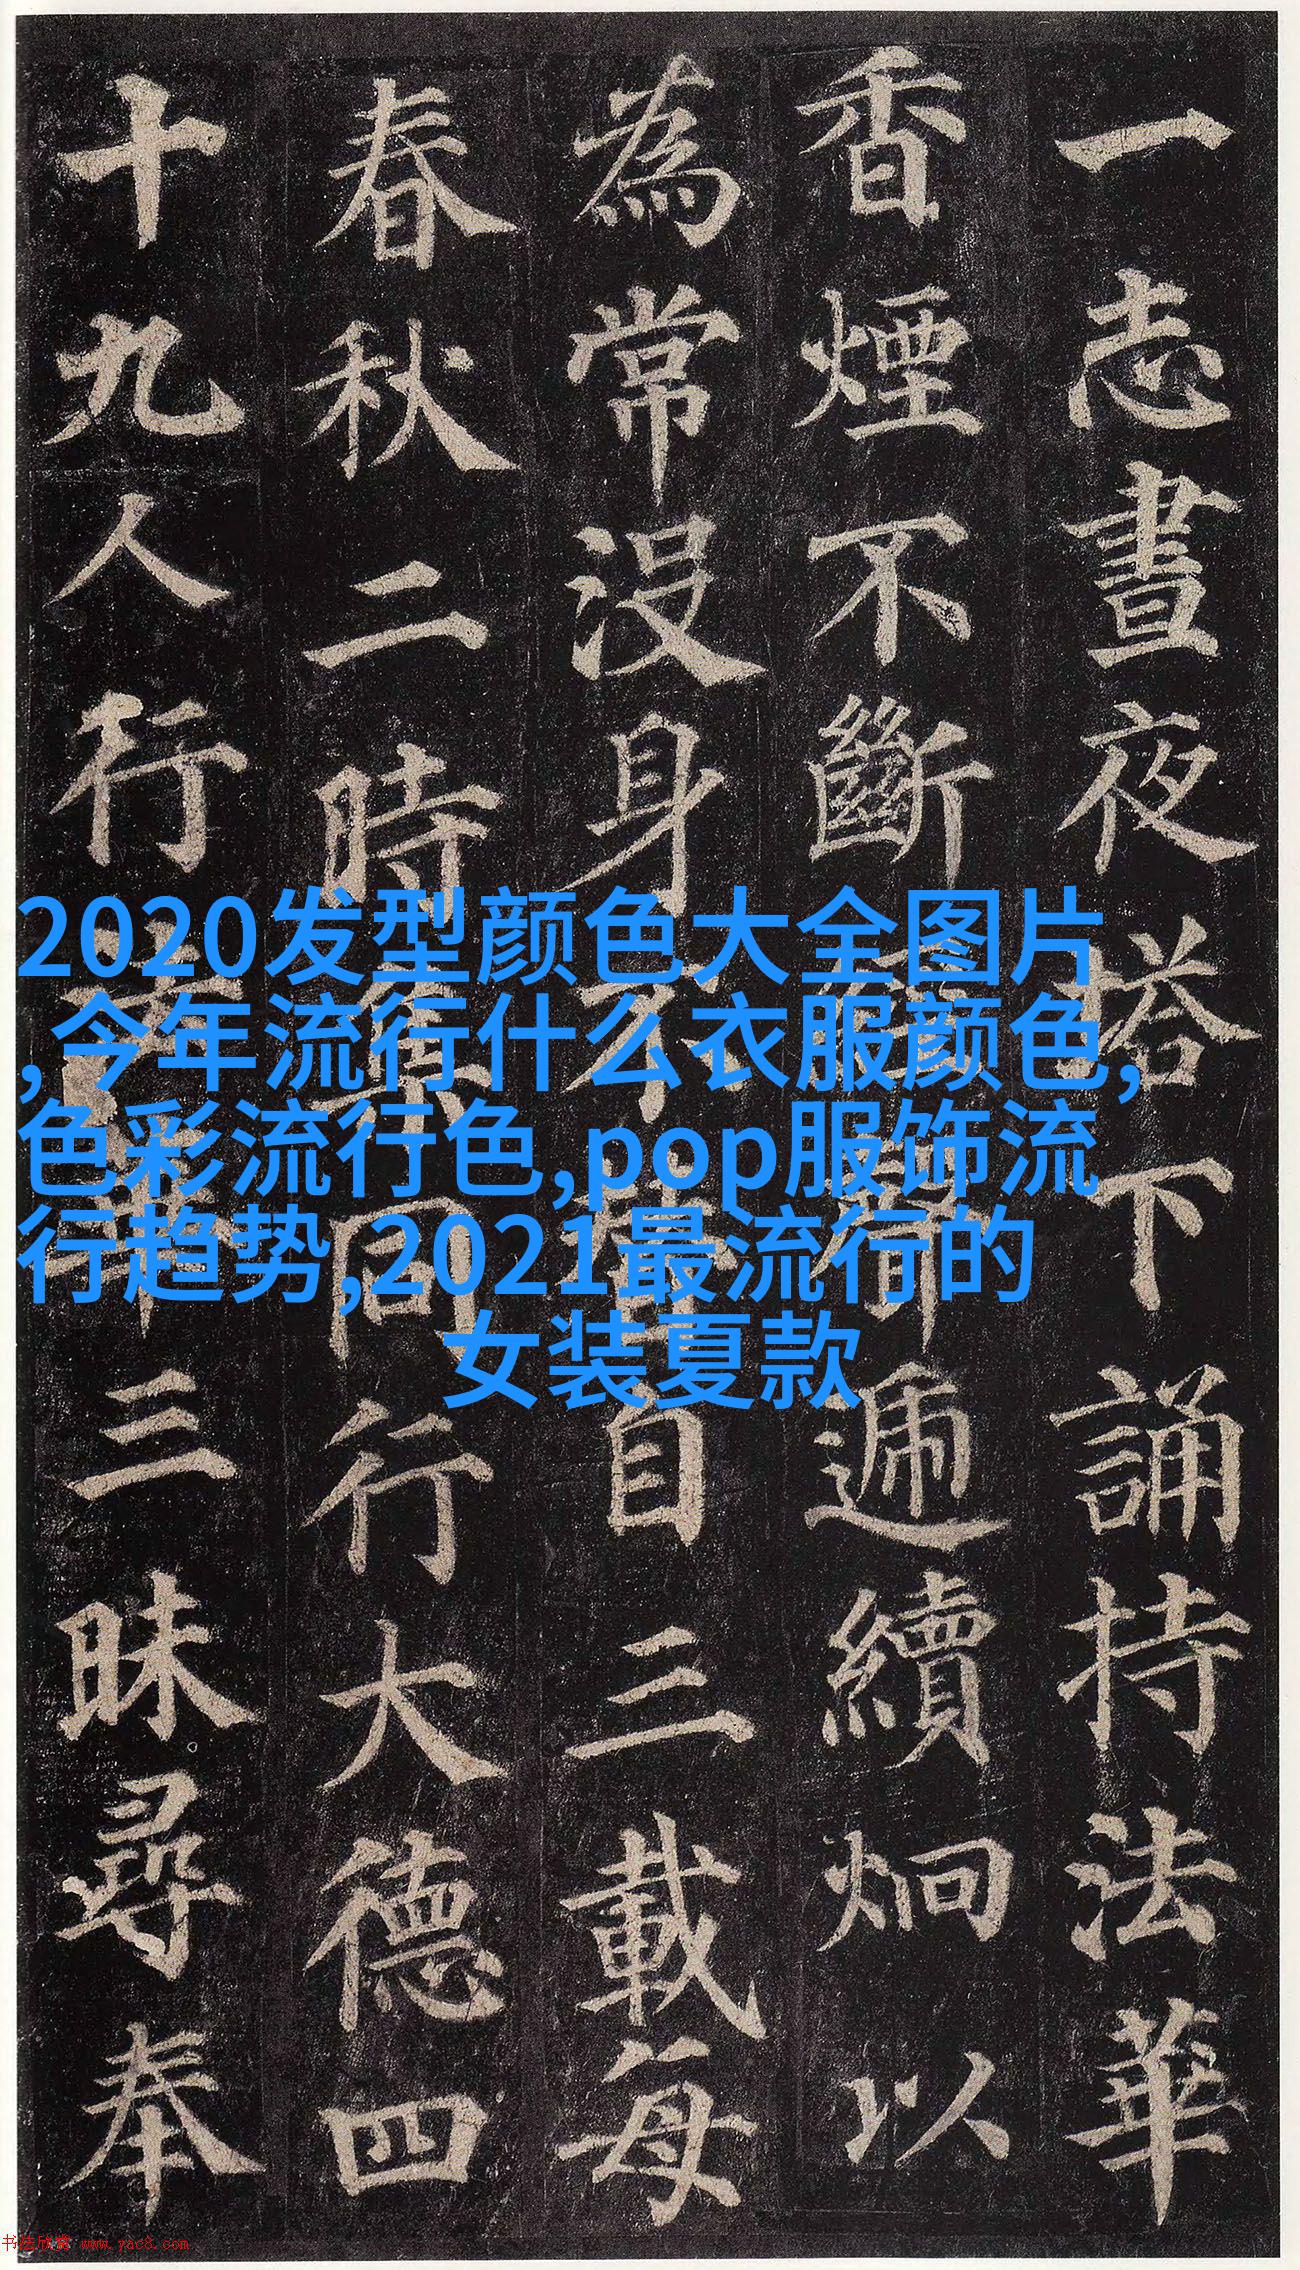 一志晝夜塔下誦持法華
香煙不斷經聲遞續炯以
為常沒身不替自三載每
春秋二時集同行大德四
十九人行法華三昧尋奉
2020发型颜色大全图片
,今年流行什么衣服颜色,
色彩流行色,pop服饰流
行趋势,2021最流行的
女装夏款
书法欣赏 www.yac8.com